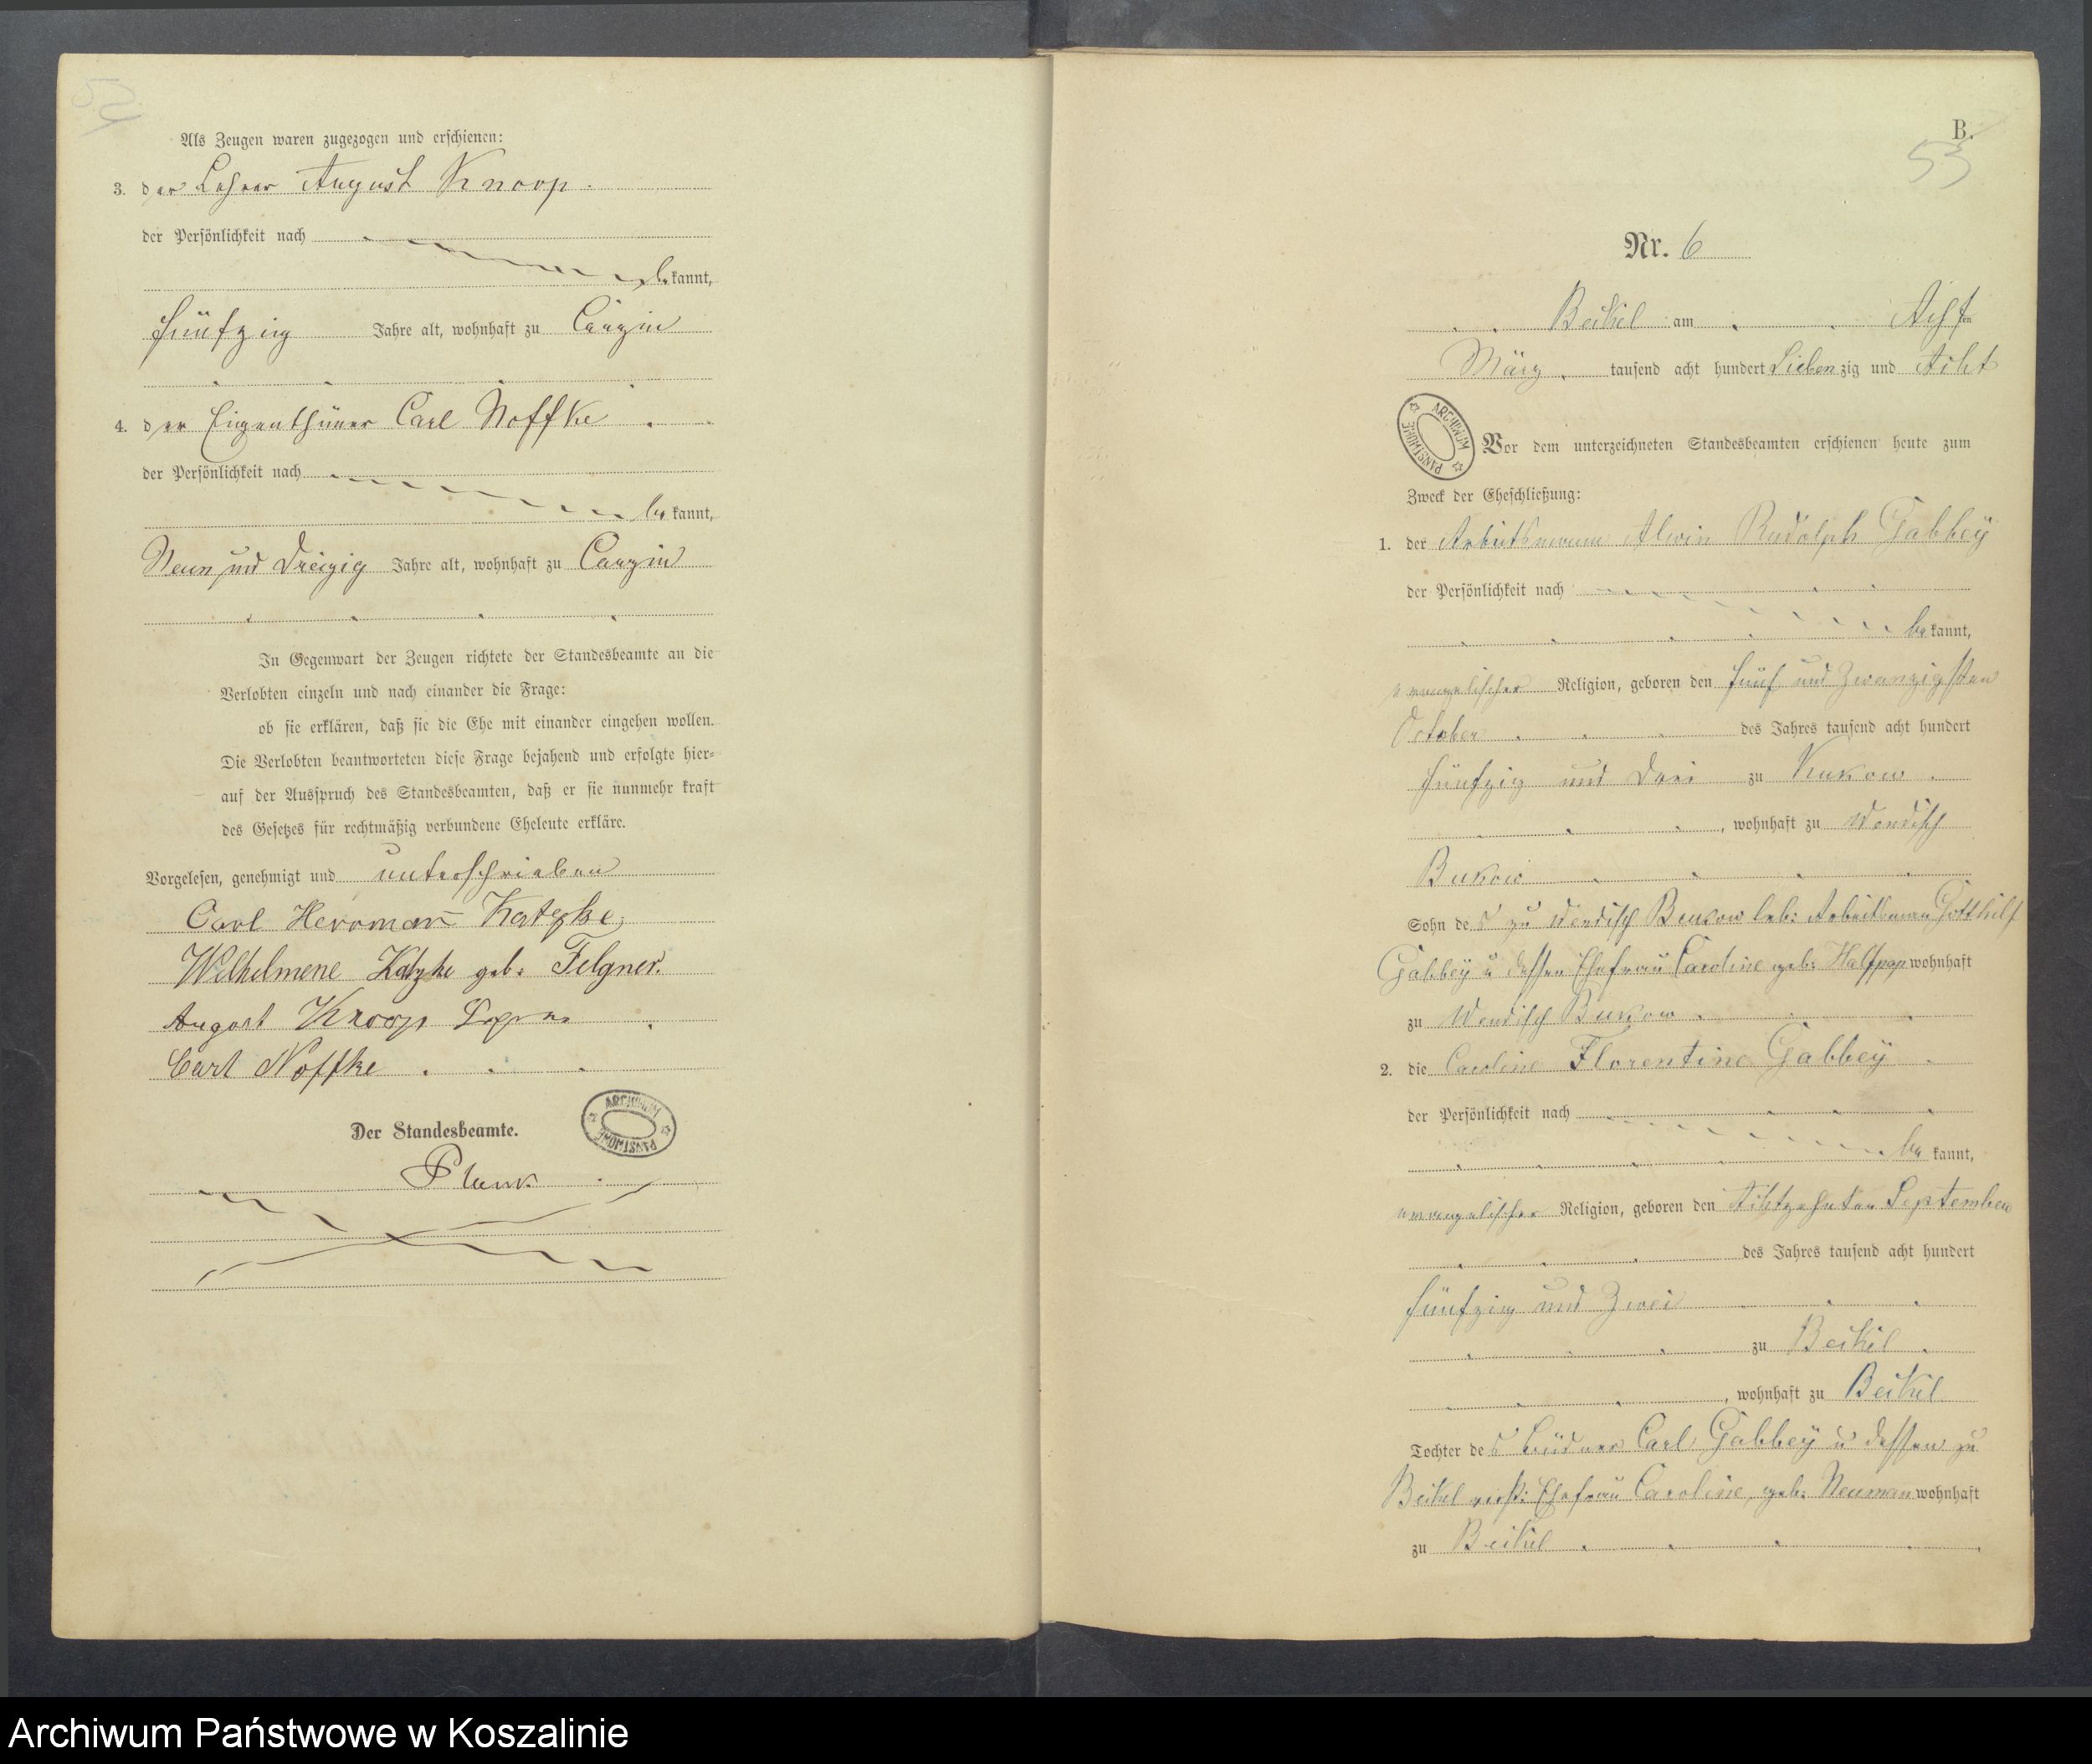 52
Als Zeugen waren zugezogen und erschienen:
3. der Lehrer August Knoop.
der Persönlichkeit nach
bekannt,
fünfzig Jahre alt, wohnhaft zu Carzin
4. der Eigenthümer Carl Noffke
der Persönlichkeit nach
bekannt,
Neun und Dreizig Jahre alt, wohnhaft zu Carzin
In Gegenwart der Zeugen richtete der Standesbeamte an die
Verlobten einzeln und nach einander die Frage:
ob sie erklären, daß sie die Ehe mit einander eingehen wollen.
Die Verlobten beantworteten diese Frage bejahend und erfolgte hier-
auf der Ausspruch des Standesbeamten, daß er sie nunmehr kraft
des Gesetzes für rechtmäßig verbundene Eheleute erkläre.
Vorgelesen, genehmigt und unterschrieben
Carl Herrmann Katzke
Wilhelmene Katzke geb: Felgner.
August Knoop Lehrer
Carl Noffke
Der Standesbeamte.
ARCHIWUM PAŃSTWOWE
B.
53
Nr. 6
Beckel am Achten
März tausend acht hundert Siebenzig und Acht
ARCHIWUM PAŃSTWOWE
Vor dem unterzeichneten Standesbeamten erschienen heute zum
Zweck der Eheschließung:
1. der Arbeitsmann Alwin Rudolph Gabbey
der Persönlichkeit nach
bekannt,
evangelischer Religion, geboren den fünf und Zwanzigsten
October des Jahres tausend acht hundert
fünfzig und Drei zu Kukow
, wohnhaft zu Wendisch
Bukow
Sohn des zu Wendisch Bukow leb: Arbeitsmann Gotthilf
Gabbey u dessen Ehefrau Caroline geb: Halfpap wohnhaft
zu Wendisch Bukow
2. die Caroline Florentine Gabbey
der Persönlichkeit nach
bekannt,
evangelischer Religion, geboren den Achtzehnten September
des Jahres tausend acht hundert
fünfzig und Zwei
zu Beckel
, wohnhaft zu Beckel
Tochter des Büdner Carl Gabbey u dessen zu
Beckel verst: Ehefrau Caroline, geb: Neuman wohnhaft
zu Beckel
Archiwum Państwowe w Koszalinie